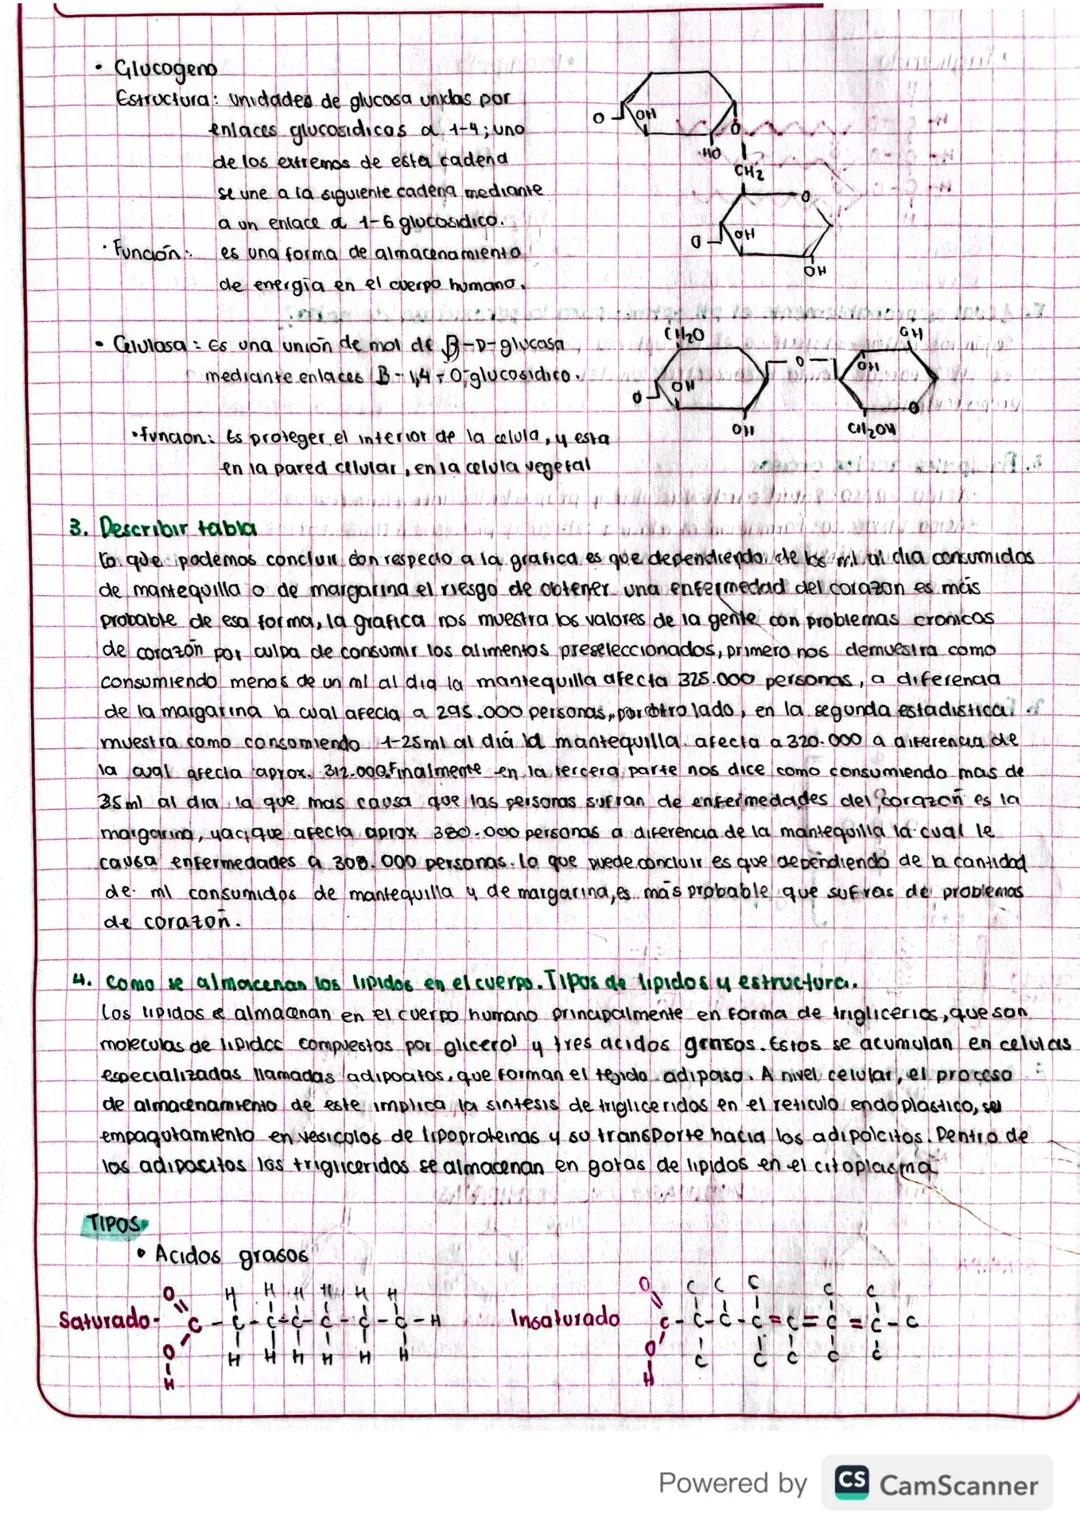 • Glucogeno
Estructura: unidades de glucosa unidas por
enlaces glucosidicos α 1-4; uno
de los extremos de esta cadena
se une a la siguiente cadena mediante
a un enlace α 1-6 glucosidico.
• Función: es una forma de almacenamiento
de energía en el cuerpo humano.
O OH HO O
CH2
O
O OH
OH
• Celulosa: Es una unión de mol de β-D-glucosa
mediante enlaces B-1,4-O-glucosidico.
CH2O OH
O OH O OH
OH CH2OH O
• funcion: Es proteger el interior de la celula, y esta
en la pared celular, en la celula vegetal
3. Describir tabla
Lo que podemos concluir con respecto a la grafica es que dependiendo de los ml al dia consumidos
de mantequilla o de margarina el riesgo de obtener una enfermedad del corazon es más
probable de esa forma, la grafica nos muestra los valores de la gente con problemas cronicos
de corazón por culpa de consumir los alimentos preseleccionados, primero nos demuestra como
consumiendo menos de un ml al dia la mantequilla afecta 325.000 personas, a diferencia
de la margarina la cual afecta a 295.000 personas, por otro lado, en la segunda estadistica
muestra como consomiendo 1-25ml al diá la mantequilla afecta a 320.000 a diferencia de
la cual afecta aprox. 312.000. Finalmente en la tercera parte nos dice como consumiendo mas de
35ml al dia la que mas causa que las personas sufran de enfermedades del corazon es la
margarina, yacique afecta aprox 380.000 personas a diferencia de la mantequilla la cual le
causa enfermedades a 308.000 personas. lo que puede concluir es que dependiendo de la cantidad
de ml consumidos de mantequilla y de margarina, es más probable que sufras de problemas
de corazon.
4. Como se almacenan los lipidos en el cuerpo. Tipos de lipidos y estructura.
Los lipidos se almacenan en el cuerpo humano principalmente en forma de triglicerios, que son
moleculas de lipidos compuestos por glicerol y tres acidos grasos. Estos se acumulan en celulas
especializadas llamadas adipocitos, que forman el tejido adiposo. A nivel celular, el proceso
de almacenamiento de este implica la sintesis de trigliceridos en el reticulo endoplastico, su
empaqutamiento en vesicolos de lipoproteinas y su transporte hacia los adipolcitos. Dentro de
los adipositos los trigliceridos se almacenan en gotas de lipidos en el citoplasma
TIPOS
• Acidos grasos
O H H H H H H
Saturado- C - C - C - C - C - C - C - H
O H H H H H H
H
O C C C C C
Insaturado C - C - C - C = C = C = C - C
O C C C C C
H
Powered by CS CamScanner